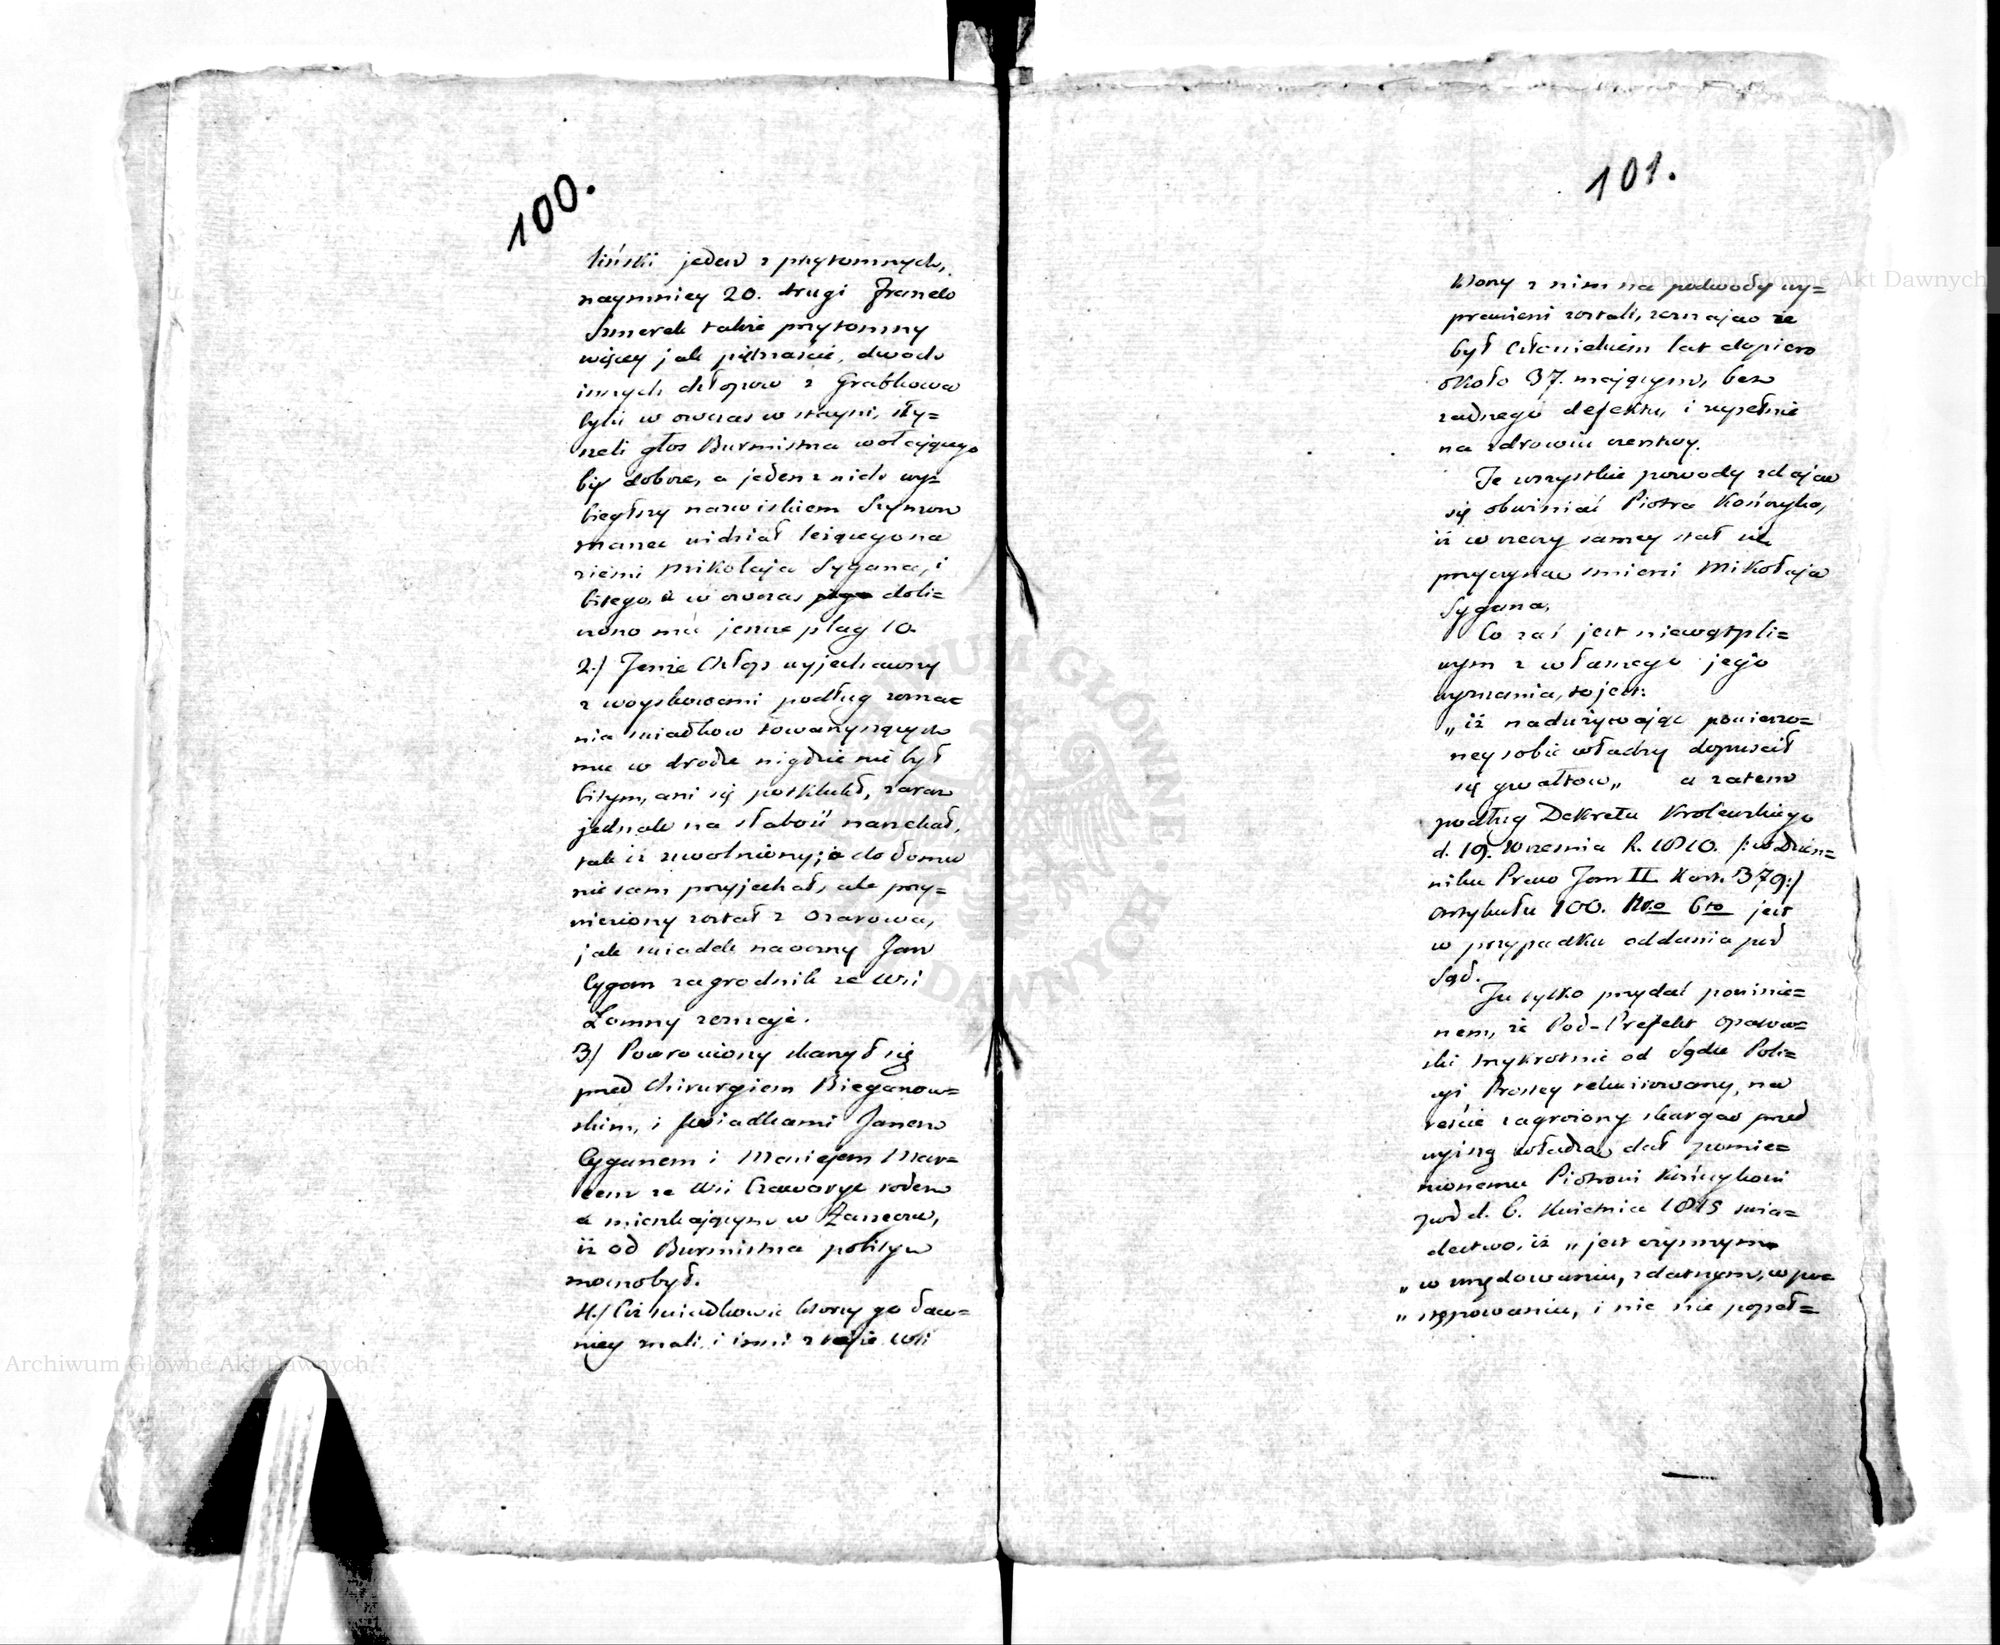 100.
liński jeden z przytomnych,
naymniey 20. drugi Franc
Szmerek także przytomny
więcey jak piętnaście, dwóch
innych chłopow z Grabkowa
byli w owczas w stayni, sły=
szeli głos Burmistrza wołającego
biy dobrze, a jeden z nich wy=
biegłszy nazwiskiem Szymon
widział leżącego na
ziemi Mikołaja Cygana, i
bitego, a w owczas doli=
czono mu jeszcze plag 10.
2.) Jenże Chłop wyjechawszy
z woyskowemi podług zezna=
nia swiadkow towarzyszących
mu w drodze nigdzie nie był
bitym, ani się potłukł, zaraz
jednak na słabość narzekał,
tak iż uwolniony; do domu
nie sam przyjechał, ale przy=
wieziony został z Ożarowa,
jak swiadek naoczny Jan
Cygan zagrodnik ze Wsi
Łomny zeznaje.
3) Powrocony skarżył się
przed Chirurgiem Bieganow=
skim, i swiadkami Janem
Cyganem i Maciejem Mar=
cem ze Wsi rodem
a mieszkającym w
iż od Burmistrza pobitym
mocno był.
4.) Ciż swiadkowie ktorzy go daw=
niey znali, i inni z teyże Wsi
101.
ktorzy z nim na podwody wy=
prawieni zostali, zeznają że
był Człowiekiem lat dopiero
około 37. mającym, bez
żadnego defektu, i zupełnie
na zdrowiu czerstwy.
Te wszystkie powody zdają
się obwiniać Piotra Kończyka,
iż w rzeczy samey stał się
przyczyną smierci Mikołaja
Cygana.
Co zaś jest niewątpli=
wym z własnego jego
wyznania, to jest:
„iż nadużywając powierzo=
ney sobie władzy dopuscił
się gwałtow„ a zatem
podług Dekretu Krolewskiego
d. 19. Wrzesnia R. 1810. /: w Dzien=
niku Praw Tom II Kart. 379:/
Artykułu 100. Nro 6to jest
w przypadku oddania pod
Sąd.
Tu tylko przydać powinie=
nem, że Pod-Prefekt Opatow=
ski trzykrotnie od Sądu Poli=
cyi Prostey rekwirowany, na
reście zagrożony skargą przed
wyższą władzą dał pomie=
nionemu Piotrowi Kończykowi
pod d. 6. Kwietnia 1815 swia=
dectwo, iż „jest czynnym
„w urzędowaniu, zdatnym, w po=
„stępowaniu, i nic nie popeł=
Archiwum Główne Akt Dawnych
Archiwum Główne Akt Dawnych